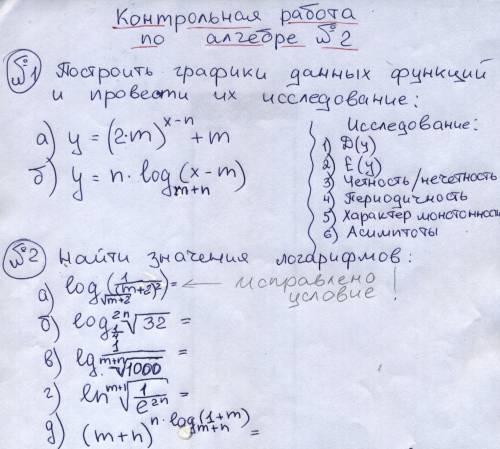 Контрольная работа
по алгебре №2
№1 Построить графики данных функций
и провести их исследование:
а) y = (2·m)^(x-n) + m
б) y = n · log_(m+n) (x-m)
Исследование:
1) D(y)
2) E(y)
3) Четность/нечетность
4) Периодичность
5) Характер монотонности
6) Асимптоты
№2 Найти значения логарифмов:
а) log_(√(m+2)) (1/(m+2)²) = ← исправлено
условие!
б) log_(1/4) ^(2n)√32 =
в) lg 1/^(m+n)√1000 =
г) ln ^(m+1)√(1/e^(2n)) =
д) (m+n)^(n·log_(m+n) (1+m)) =